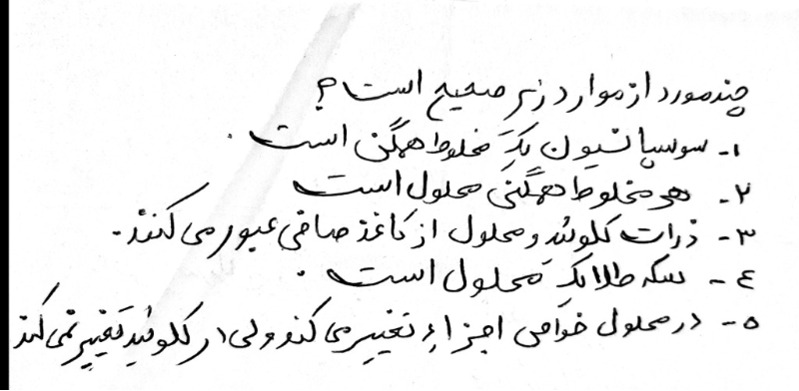 چند مورد از موارد زیر صحیح است؟
۱- سوسپانسیون یک مخلوط همگن است.
۲- هر مخلوط همگنی محلول است
۳- ذرات کلوئید و محلول از کاغذ صافی عبور می کنند.
٤- سکه طلا یک محلول است.
۵- در محلول خواص اجزاء تغییر می کند ولی در کلوئید تغییر نمی کند